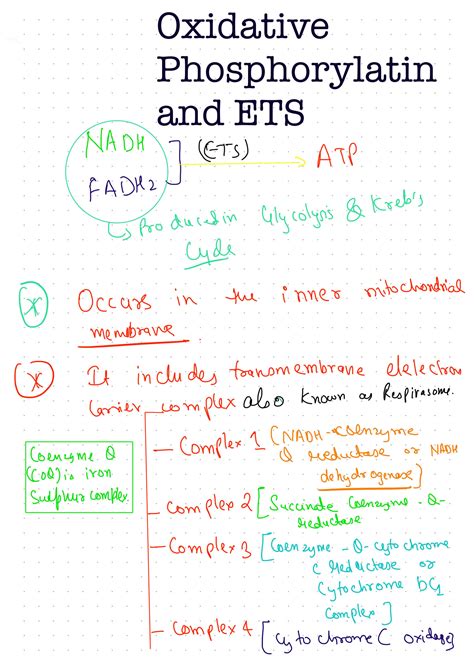 Oxidative
Phosphorylatin
and ETS
NADH
FADH2
(ETS)
ATP
Produced in Glycolysis & Kreb's
Cycle
Occurs in the inner mitochondrial
membrane.
It includes transmembrane elelectron
carrier complex also known as Respirasome.
Complex 1 (NADH-coenzyme
Q reductase or NADH
dehydrogenase)
Coenzyme Q
(CoQ) is iron
Sulpher complex.
Complex 2 [Succinate Coenzyme-Q-
reductase
Complex 3 [Coenzyme-Q-cytochrome
c reductase or
Cytochrome bC1
Complex]
Complex 4 (Cytochrome C oxidase)